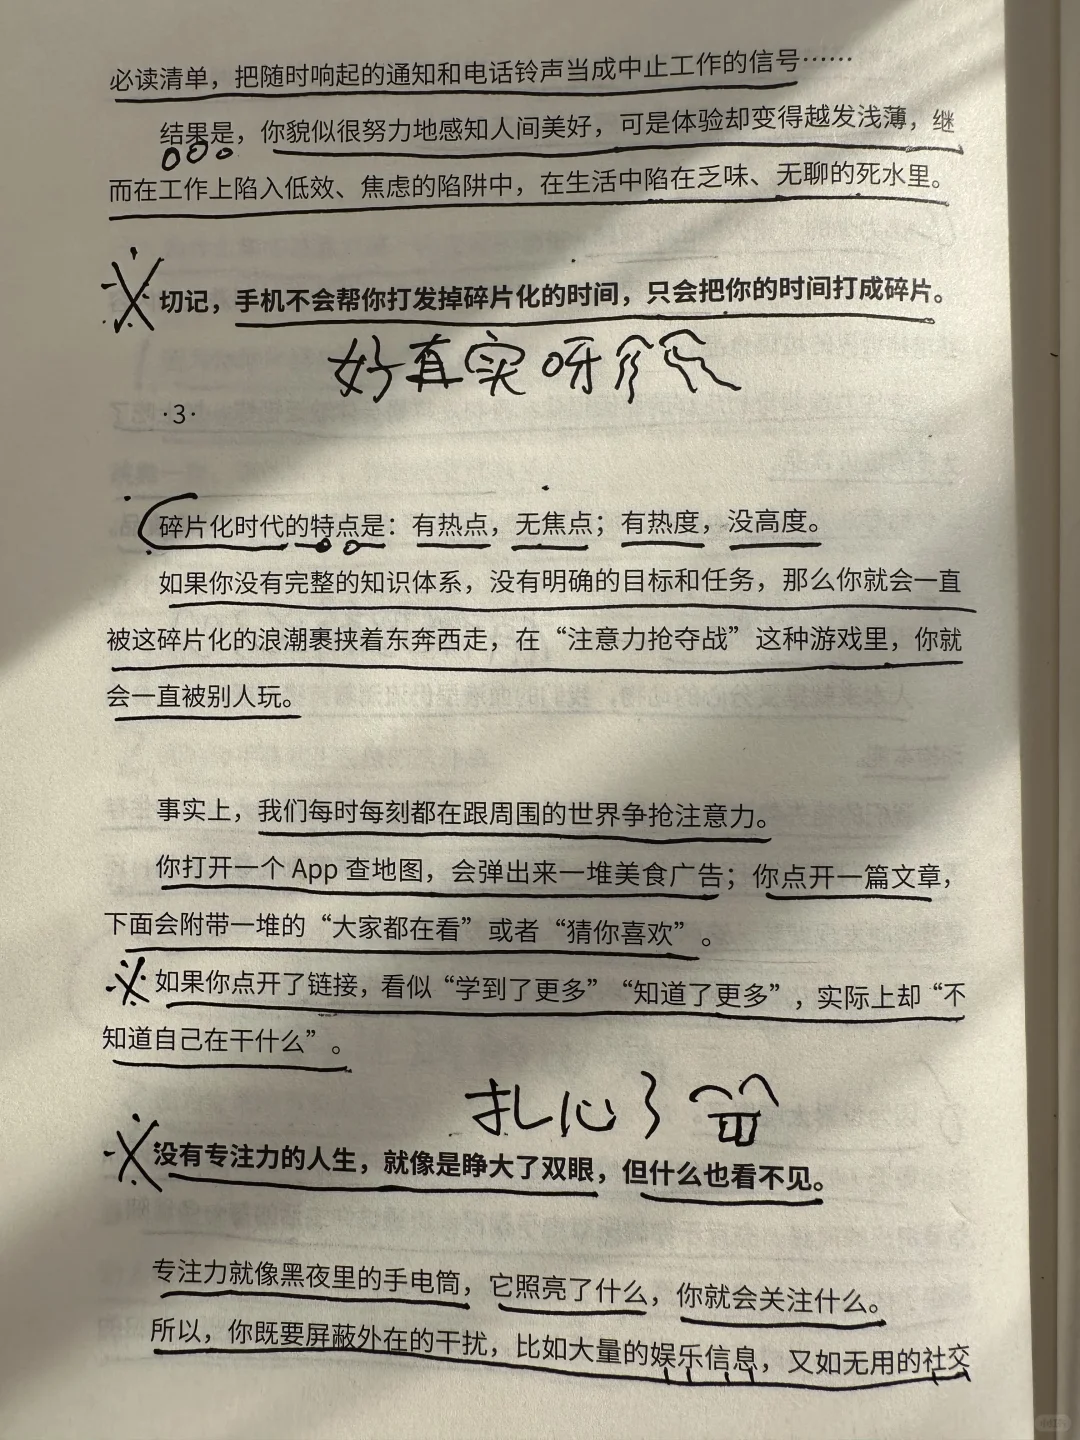 必读清单，把随时响起的通知和电话铃声当成中止工作的信号……
结果是，你貌似很努力地感知人间美好，可是体验却变得越发浅薄，继
而在工作上陷入低效、焦虑的陷阱中，在生活中陷在乏味、无聊的死水里。
切记，手机不会帮你打发掉碎片化的时间，只会把你的时间打成碎片。
好真实呀
·3·
碎片化时代的特点是：有热点，无焦点；有热度，没高度。
如果你没有完整的知识体系，没有明确的目标和任务，那么你就会一直
被这碎片化的浪潮裹挟着东奔西走，在“注意力抢夺战”这种游戏里，你就
会一直被别人玩。
事实上，我们每时每刻都在跟周围的世界争抢注意力。
你打开一个 App 查地图，会弹出来一堆美食广告；你点开一篇文章，
下面会附带一堆的“大家都在看”或者“猜你喜欢”。
如果你点开了链接，看似“学到了更多”“知道了更多”，实际上却“不
知道自己在干什么”。
扎心了
没有专注力的人生，就像是睁大了双眼，但什么也看不见。
专注力就像黑夜里的手电筒，它照亮了什么，你就会关注什么。
所以，你既要屏蔽外在的干扰，比如大量的娱乐信息，又如无用的社交